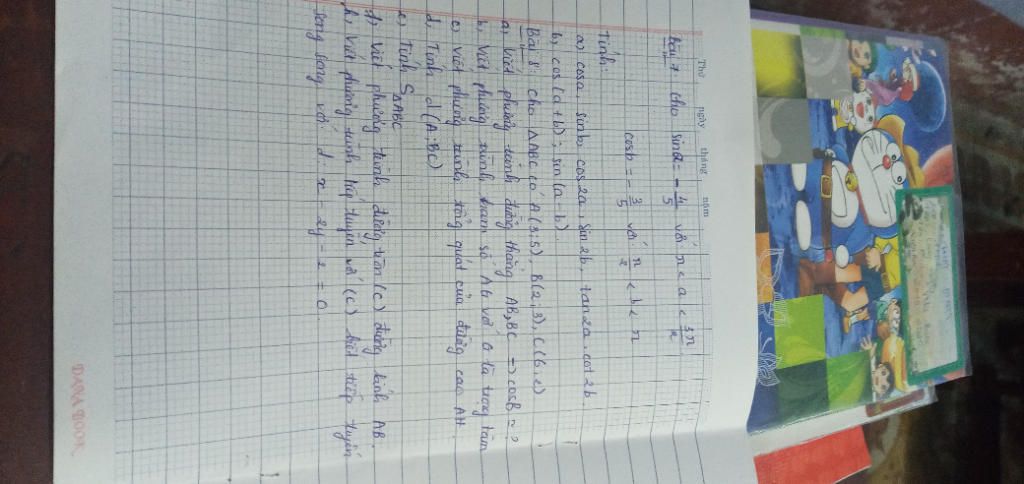 Thứ ngày tháng năm
Bài 7 cho sina = -4/5 với π < a < 3π/2
cosb = -3/5 với π/2 < b < π
Tính:
a) cosa, sinb, cos2a, sin2b, tan2a, cot2b.
b, cos(a+b); sin(a-b).
Bài 8: cho ΔABC có A(3;5), B(2;3), C(6;2)
a) Viết phương trình đường thẳng AB, BC → cosB = ?
b, Viết phương trình tham số AG với G là trọng tâm
c) Viết phương trình tổng quát của đường cao AH.
d, Tính d(A;BC)
e, Tính SΔABC
f) Viết phương trình đường tròn (C) đường kính AB.
h, Viết phương trình tiếp tuyến với (C) biết tiếp tuyến
song song với d x - 2y - 2 = 0.
DARA BOOK